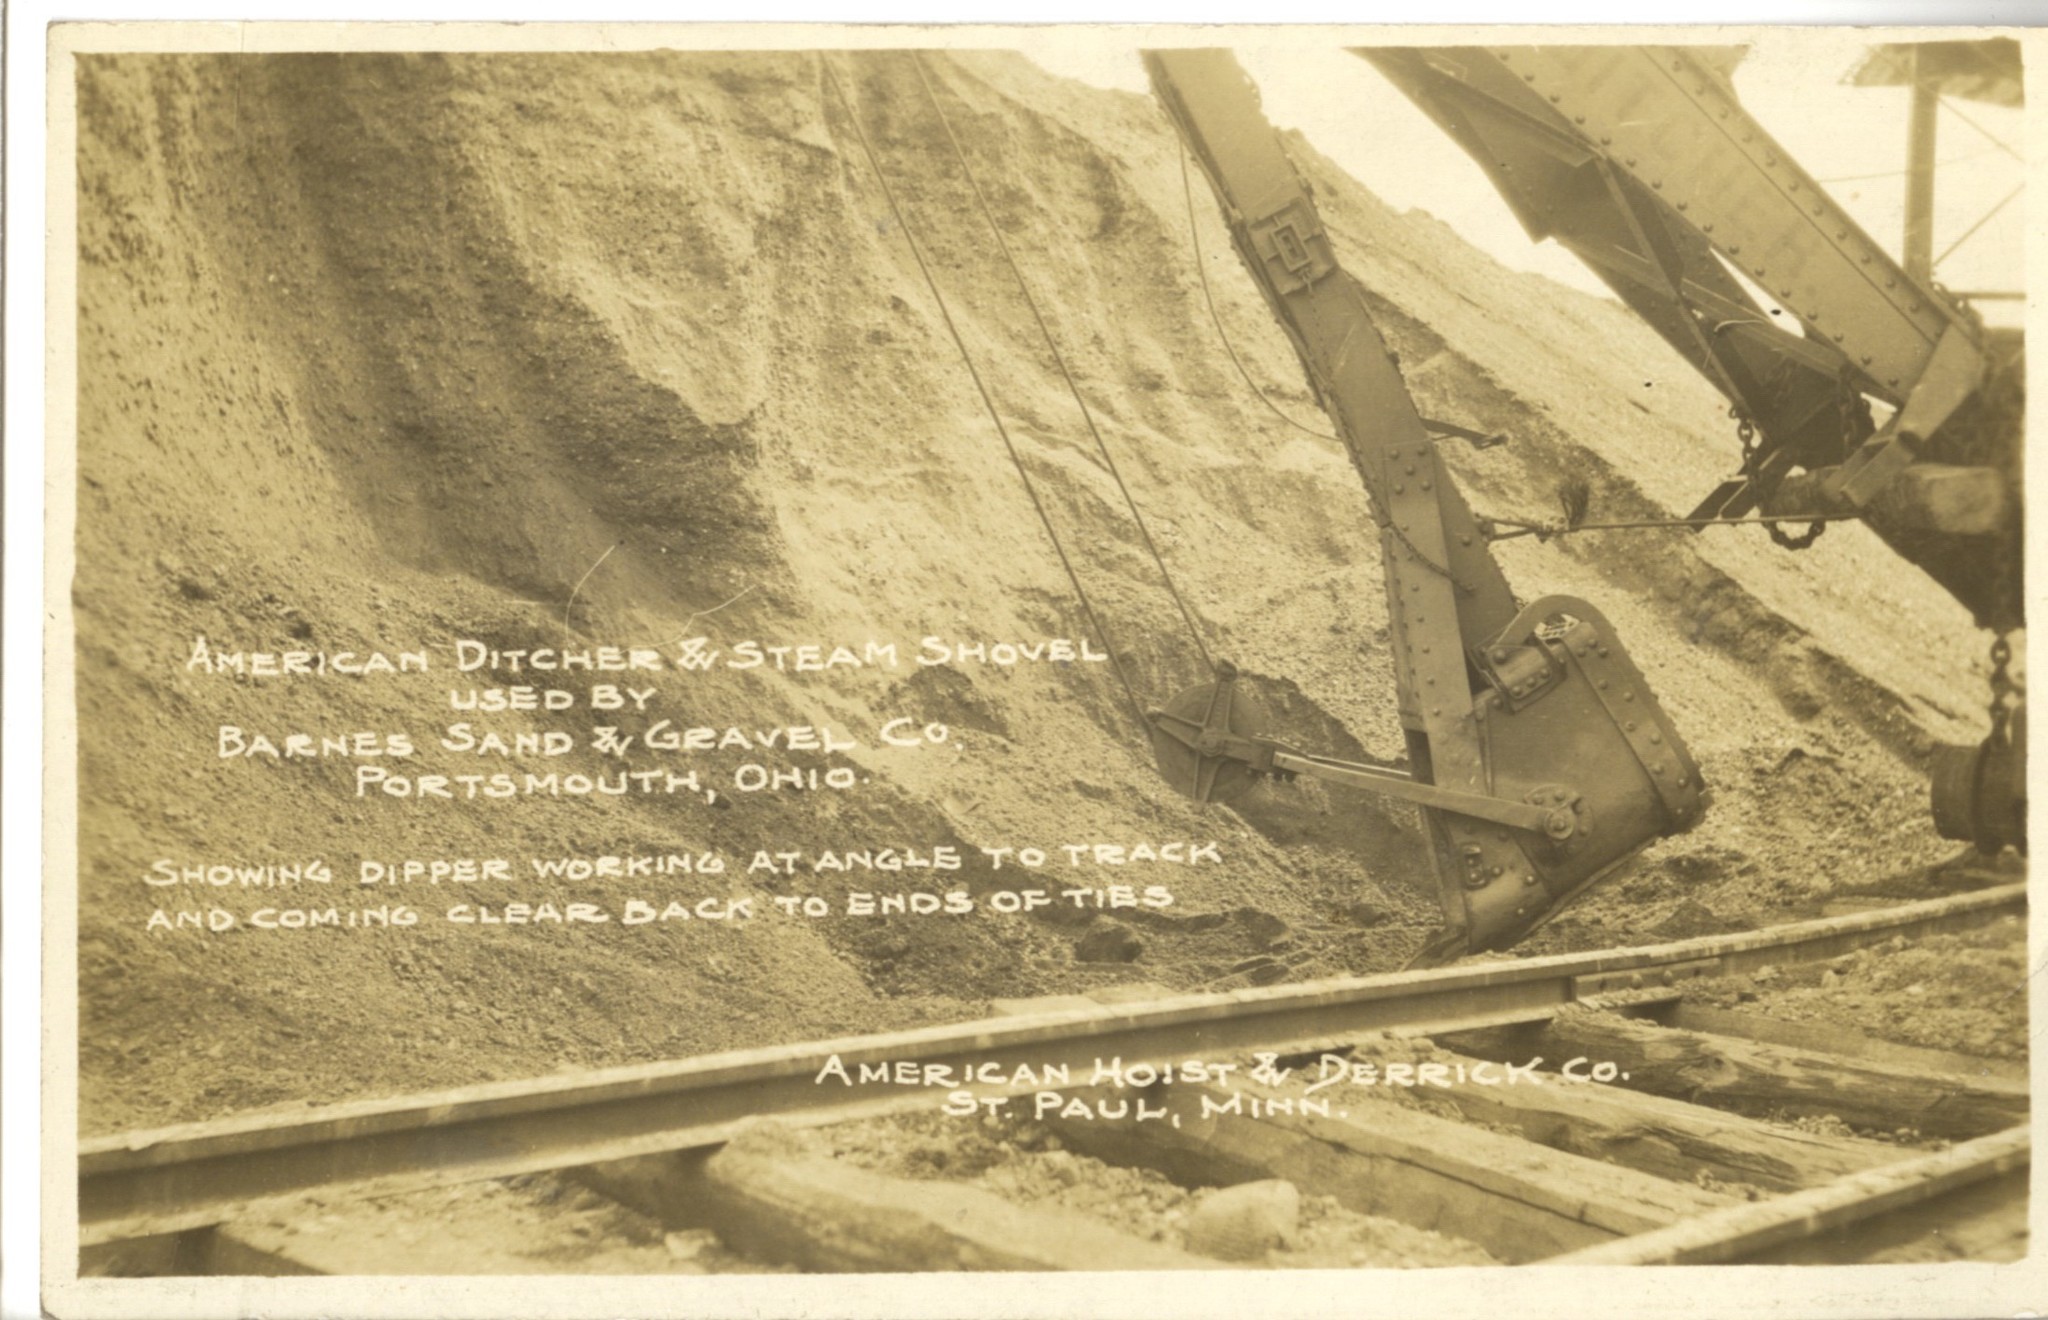 AMERICAN DITCHER & STEAM SHOVEL
USED BY
BARNES SAND & GRAVEL CO.
PORTSMOUTH, OHIO.
SHOWING DIPPER WORKING AT ANGLE TO TRACK
AND COMING CLEAR BACK TO ENDS OF TIES
AMERICAN HOIST & DERRICK CO.
ST. PAUL, MINN.